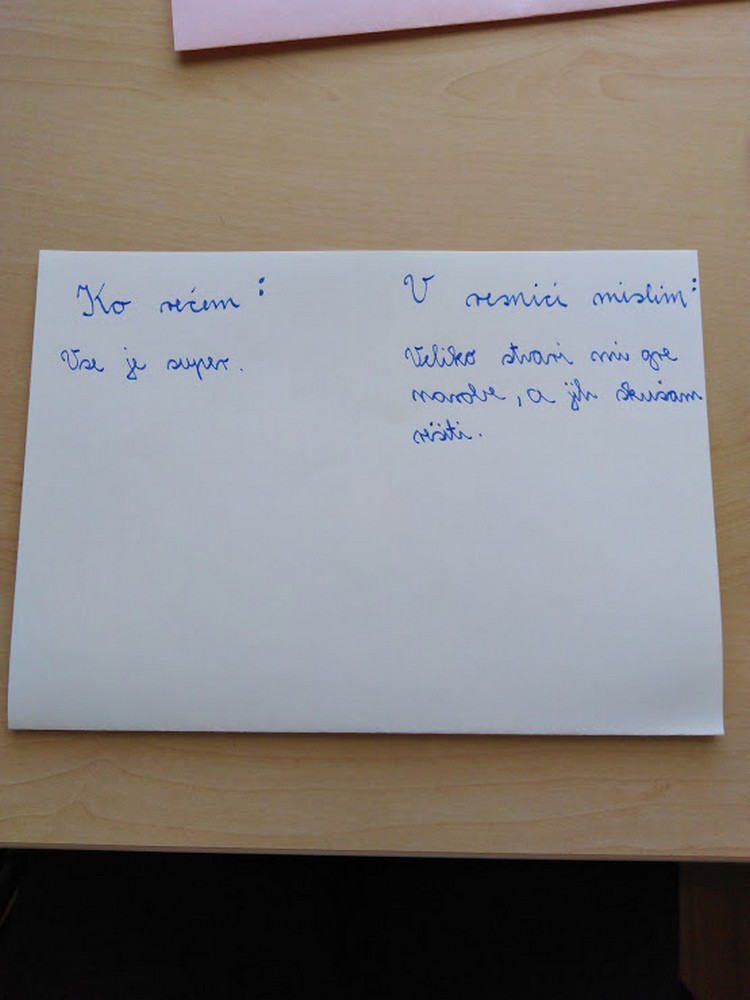 Ko rečem:
Vse je super.
V resnici mislim:
Veliko stvari mi gre
narobe, a jih skušam
rešiti.